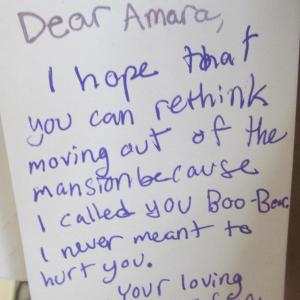 Dear Amara,
I hope that
you can rethink
moving out of the
mansion because
I called you Boo-Bear.
I never meant to
hurt you.
Your loving